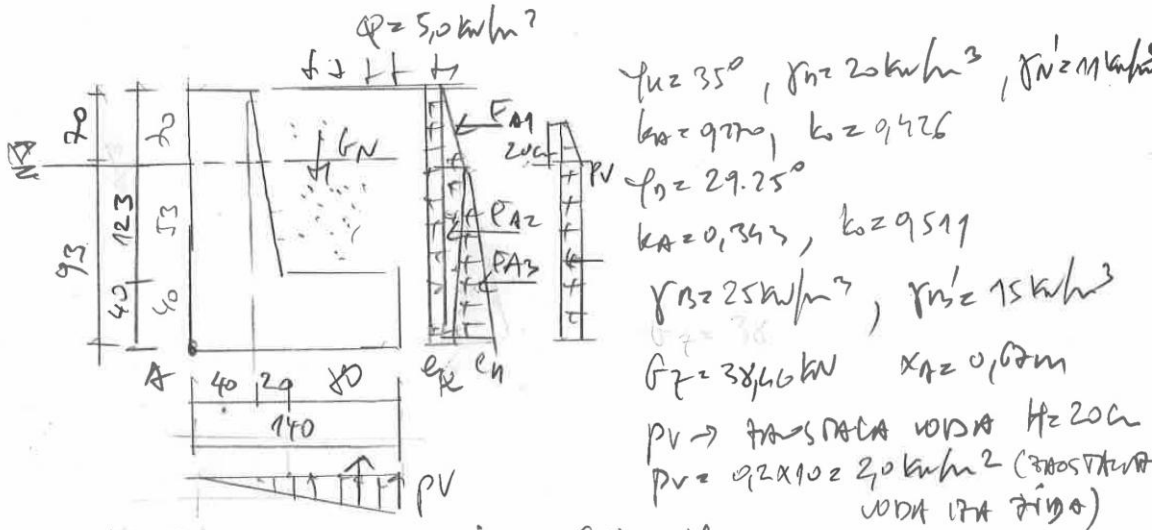 φ = 5,0 kN/m²
70
123
93
40
70
53
40
20cm
GN
EA1
EA2
EA3
PV
A
40 20 80
140
PV
φN = 35°, γN = 20 kN/m³, γN' = 11 kN/m³
kA = 0,270, k0 = 0,426
φD = 29.25°
kA = 0,343, k0 = 0,511
γB = 25 kN/m³, γB' = 15 kN/m³
GZ = 38,40 kN xA = 0,67m
PV → ZAOSTALA VODA H = 20cm
PV = 0,2 x 10 = 2,0 kN/m² (ZAOSTALA
VODA IZA ZIDA)